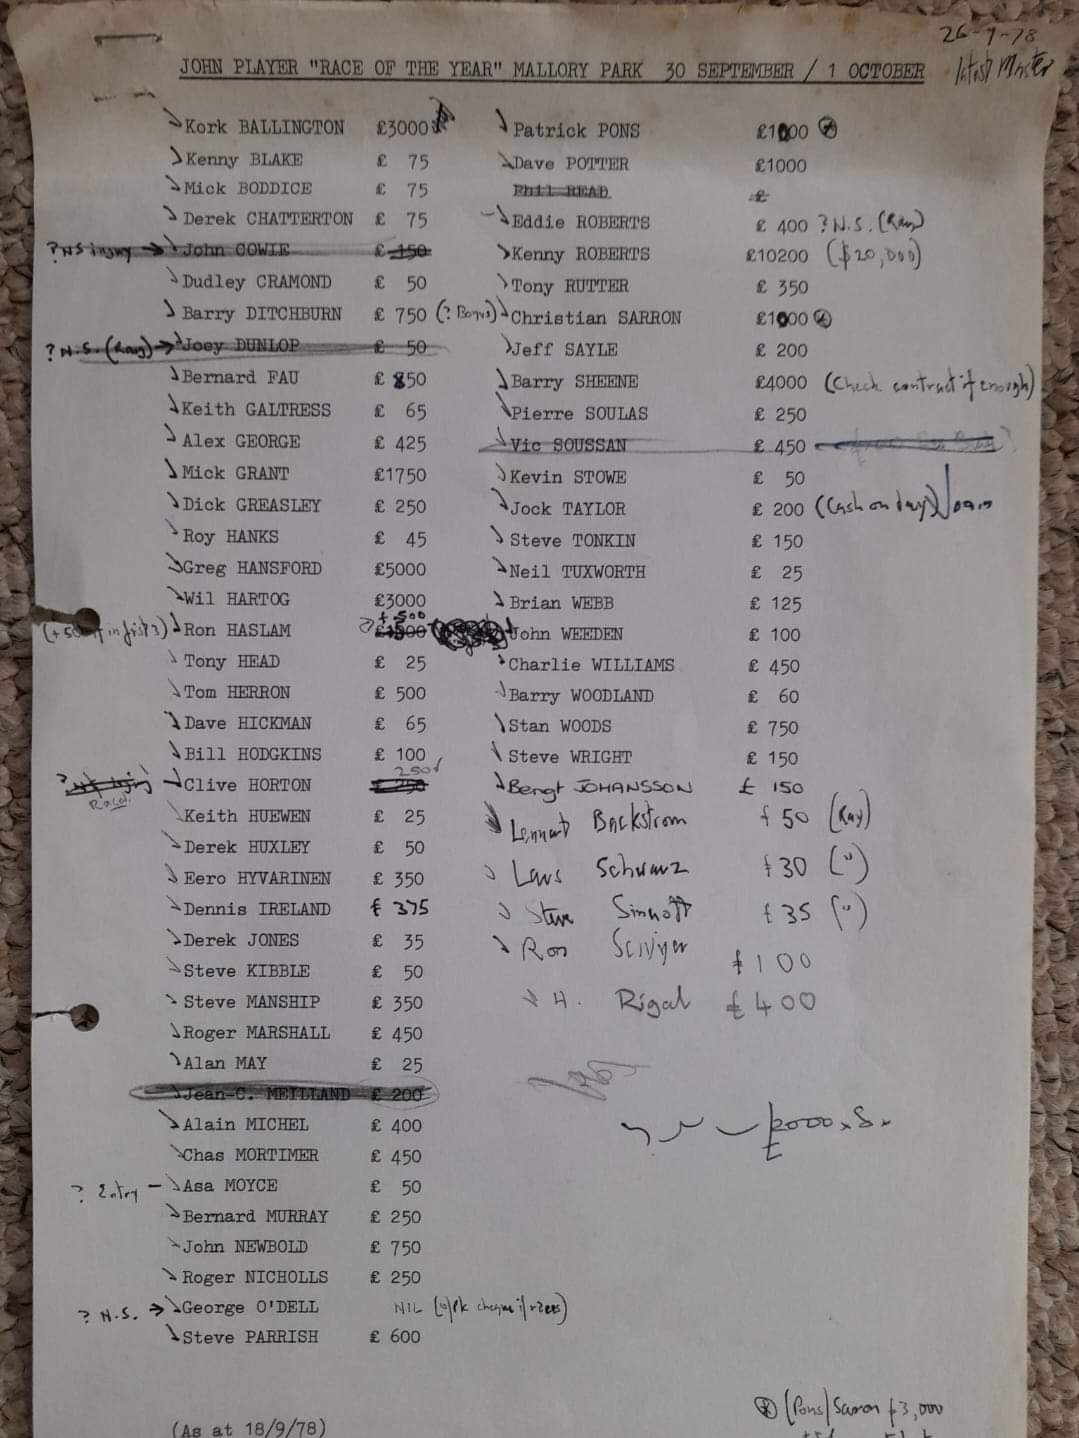 26-9-78
latest Master
JOHN PLAYER "RACE OF THE YEAR" MALLORY PARK 30 SEPTEMBER / 1 OCTOBER
Kork BALLINGTON £3000
Kenny BLAKE £ 75
Mick BODDICE £ 75
Derek CHATTERTON £ 75
? NS injury → John COWIE £ 150
Dudley CRAMOND £ 50
Barry DITCHBURN £ 750 (? Bonus)
? N.S. (Ray) → Joey DUNLOP £ 50
Bernard FAU £ 850
Keith GALTRESS £ 65
Alex GEORGE £ 425
Mick GRANT £1750
Dick GREASLEY £ 250
Roy HANKS £ 45
Greg HANSFORD £5000
Wil HARTOG £3000
+ 500
(+50 if in first 3) Ron HASLAM
Tony HEAD £ 25
Tom HERRON £ 500
Dave HICKMAN £ 65
Bill HODGKINS £ 100
250
Clive HORTON £ 250
Raced.
Keith HUEWEN £ 25
Derek HUXLEY £ 50
Eero HYVARINEN £ 350
Dennis IRELAND £ 375
Derek JONES £ 35
Steve KIBBLE £ 50
Steve MANSHIP £ 350
Roger MARSHALL £ 450
Alan MAY £ 25
Jean-C. MEILLAND £ 200
Alain MICHEL £ 400
Chas MORTIMER £ 450
? Entry — Asa MOYCE £ 50
Bernard MURRAY £ 250
John NEWBOLD £ 750
Roger NICHOLLS £ 250
? N.S. → George O'DELL NIL
Steve PARRISH £ 600
(As at 18/9/78)
Patrick PONS £1000
Dave POTTER £1000
Phil READ £
Eddie ROBERTS £ 400 ? N.S. (Ray)
Kenny ROBERTS £10200 ($20,000)
Tony RUTTER £ 350
Christian SARRON £1000
Jeff SAYLE £ 200
Barry SHEENE £4000 (Check contract if enough)
Pierre SOULAS £ 250
Vic SOUSSAN £ 450
Kevin STOWE £ 50
Jock TAYLOR £ 200 (Cash on day)
Steve TONKIN £ 150
Neil TUXWORTH £ 25
Brian WEBB £ 125
John WEEDEN £ 100
Charlie WILLIAMS £ 450
Barry WOODLAND £ 60
Stan WOODS £ 750
Steve WRIGHT £ 150
Bengt JOHANSSON £ 150
Lennart Backstrom £50 (Ray)
Lars Schwarz £30 (")
Steve Sinnott £35 (")
Ron £100
H. Rigal £400
(Pons/Sarron £3,000